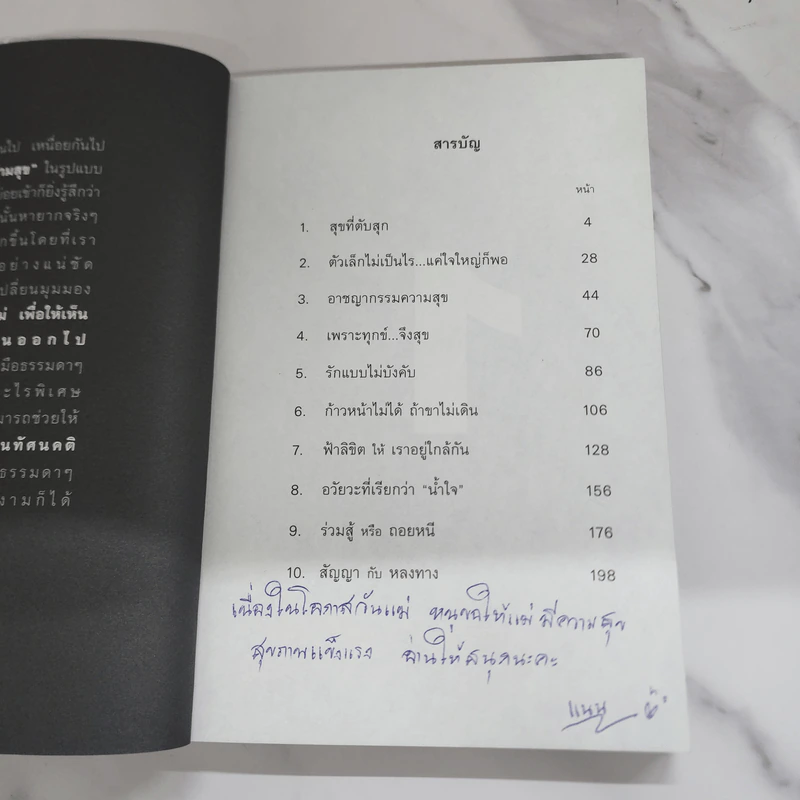 นไป เหนื่อยกันไป
ามสุข" ในรูปแบบ
อยเข้าก็ยิ่งรู้สึกว่า
นั้นหายากจริงๆ
กขึ้นโดยที่เรา
อย่างแน่ชัด
ปลี่ยนมุมมอง
ม่ เพื่อให้เห็น
นออกไป
มือธรรมดาๆ
ะไรพิเศษ
มารถช่วยให้
นทัศนคติ
ธรรมดาๆ
งามก็ได้
สารบัญ
หน้า
1. สุขที่ตับสุก 4
2. ตัวเล็กไม่เป็นไร...แค่ใจใหญ่ก็พอ 28
3. อาชญากรรมความสุข 44
4. เพราะทุกข์...จึงสุข 70
5. รักแบบไม่บังคับ 86
6. ก้าวหน้าไม่ได้ ถ้าขาไม่เดิน 106
7. ฟ้าลิขิต ให้ เราอยู่ใกล้กัน 128
8. อวัยวะที่เรียกว่า "น้ำใจ" 156
9. ร่วมสู้ หรือ ถอยหนี 176
10. สัญญา กับ หลงทาง 198
เนื่องในโอกาสวันแม่ หนูขอให้แม่มีความสุข
สุขภาพแข็งแรง อ่านให้สนุกนะคะ